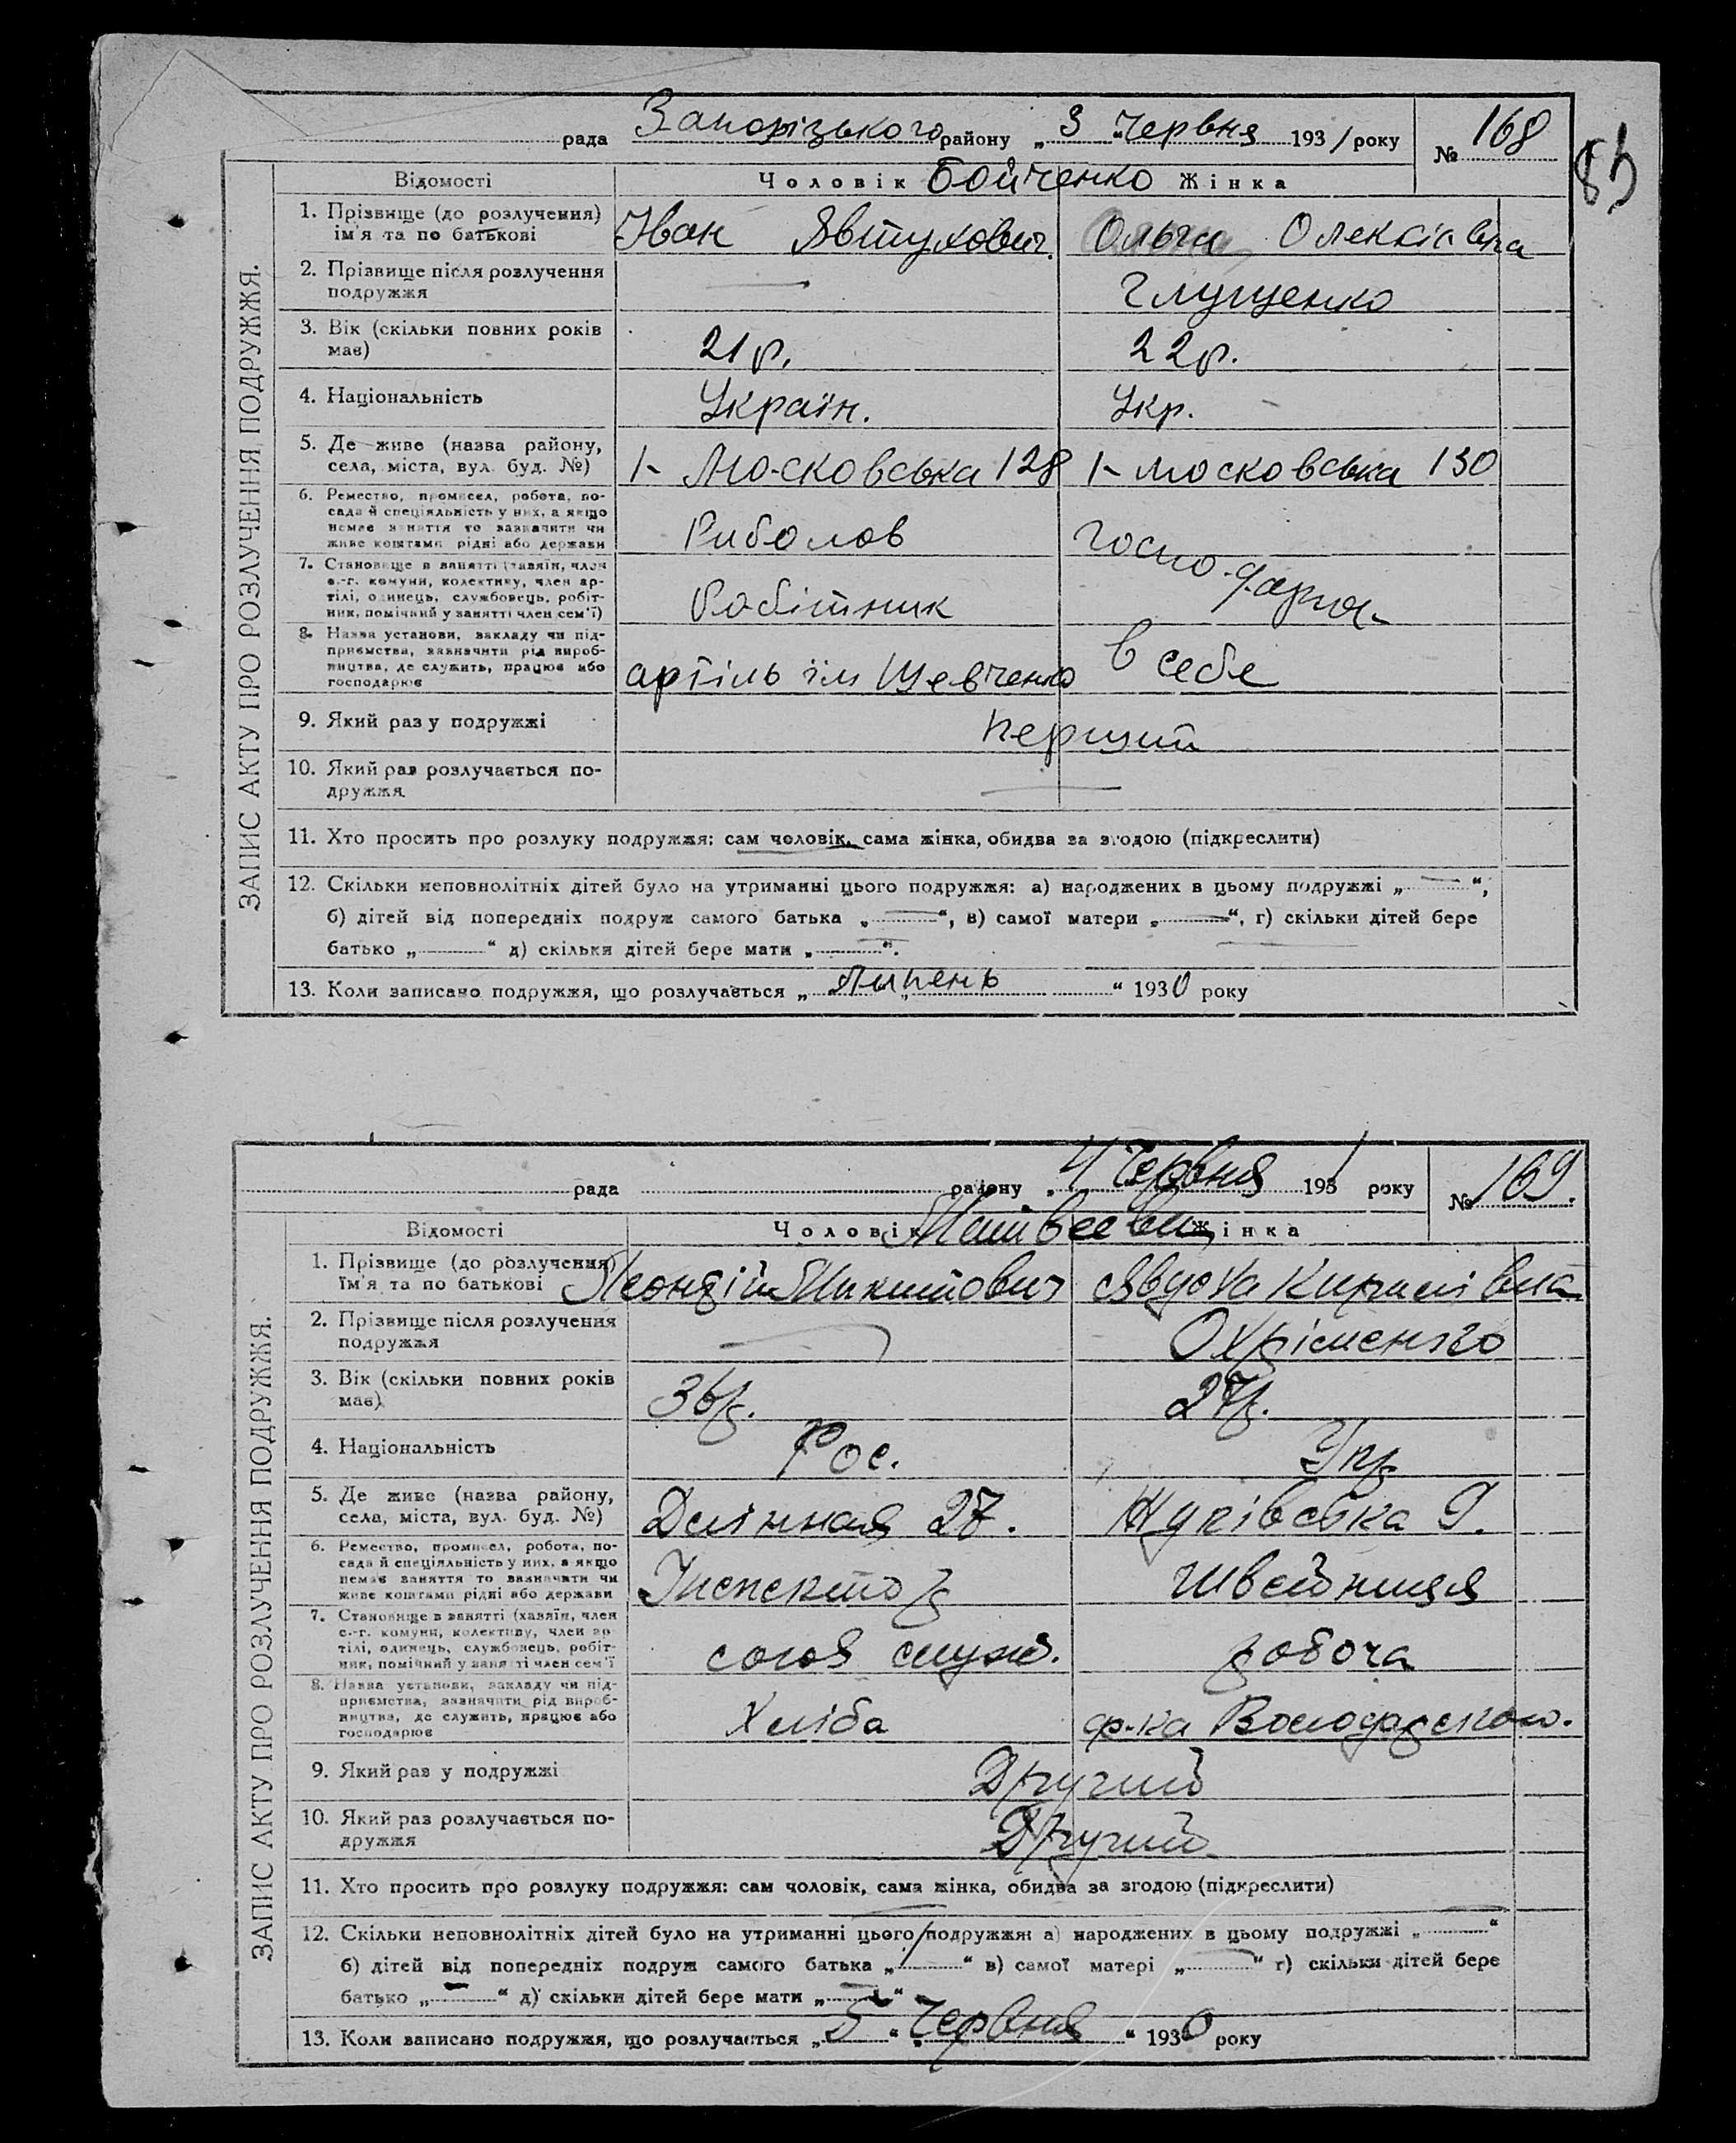 рада Запорізького району „3 “ Червня 1931 року № 168
85
ЗАПИС АКТУ ПРО РОЗЛУЧЕННЯ ПОДРУЖЖЯ.
Відомості Чоловік Бойченко Жінка
1. Прізвище (до розлучення) ім'я та по батькові Іван Явтухович. Ольга Олексіівна
2. Прізвище після розлучення подружжя — Глущенко
3. Вік (скільки повних років має) 21 р. 22 р.
4. Національність Україн. Укр.
5. Де живе (назва району, села, міста, вул. буд. №) 1- Московська 128 1- Московська 130
6. Ремество, промисел, робота, по-
сада й спеціяльність у них, а якщо
немає заняття то зазначити чи
живе коштами рідні або держави Риболов Госпо-
7. Становище в занятті (хазяїн, член
с.-г. комуни, колективу, член ар-
тілі, одинець, службовець, робіт-
ник, помічний у занятті член сем'ї) Робітник дарка
8. Назва установи, закладу чи під-
приємства, зазначити рід вироб-
ництва, де служить, працює або
господарює артіль ім Шевченко в себе
9. Який раз у подружжі перший
10. Який раз розлучається по-
дружжя —
11. Хто просить про розлуку подружжя: сам чоловік, сама жінка, обидва за згодою (підкреслити)
12. Скільки неповнолітніх дітей було на утриманні цього подружжя: а) народжених в цьому подружжі „—“,
б) дітей від попередніх подруж самого батька „—“, в) самої матери „—“, г) скільки дітей бере
батько „ “ д) скільки дітей бере мати „—“.
13. Коли записано подружжя, що розлучається „ Липень “ 1930 року
рада району „4 Червня 1931 року № 169.
ЗАПИС АКТУ ПРО РОЗЛУЧЕННЯ ПОДРУЖЖЯ.
Відомості Чоловік Матвеєви Жінка
1. Прізвище (до розлучення) ім'я та по батькові Леонтій Микитович Явдоха Кирилівна
2. Прізвище після розлучення подружжя — Охріменко
3. Вік (скільки повних років має) 36 р. 27 р.
4. Національність Рос. Укр
5. Де живе (назва району, села, міста, вул. буд. №) Длінная 27. Жуківська 9.
6. Ремество, промисел, робота, по-
сада й спеціяльність у них, а якщо
немає заняття то зазначати чи
живе коштами рідні або держави Інспектор Швейниця
7. Становище в занятті (хазяїн, член
с.-г. комуни, колективу, член ар-
тілі, одинець, службовець, робіт-
ник, помічний у занятті член сем'ї союз служб. робоча
8. Назва установи, закладу чи під-
приємства, зазначити рід вироб-
ництва, де служить, працює або
господарює Хліба ф-ка Володарского.
9. Який раз у подружжі Другий
10. Який раз розлучається по-
дружжя Другий
11. Хто просить про розлуку подружжя: сам чоловік, сама жінка, обидва за згодою (підкреслити)
12. Скільки неповнолітніх дітей було на утриманні цього подружжя: а) народжених в цьому подружжі „—“
б) дітей від попередніх подруж самого батька „ “ в) самої матері „—“ г) скільки дітей бере
батько „—“ д) скільки дітей бере мати „—“
13. Коли записано подружжя, що розлучається „5 “ Червня “ 1930 року